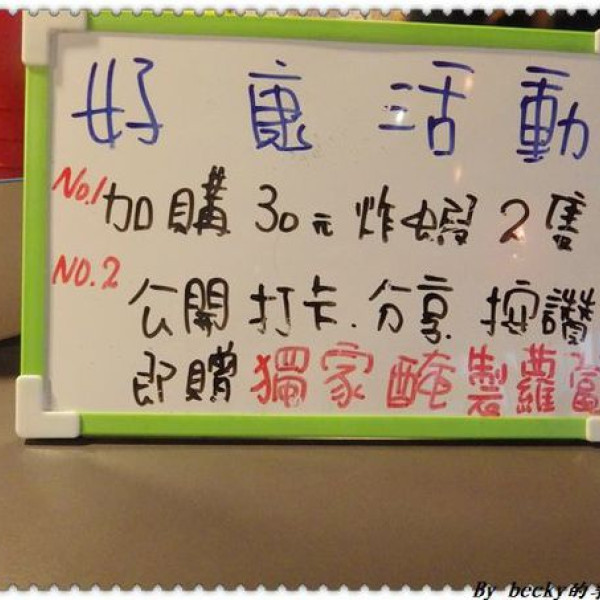 好康活動
No.1 加購30元炸蝦2隻
NO.2 公開打卡.分享.按讚
即贈獨家醃製蘿蔔
By becky的